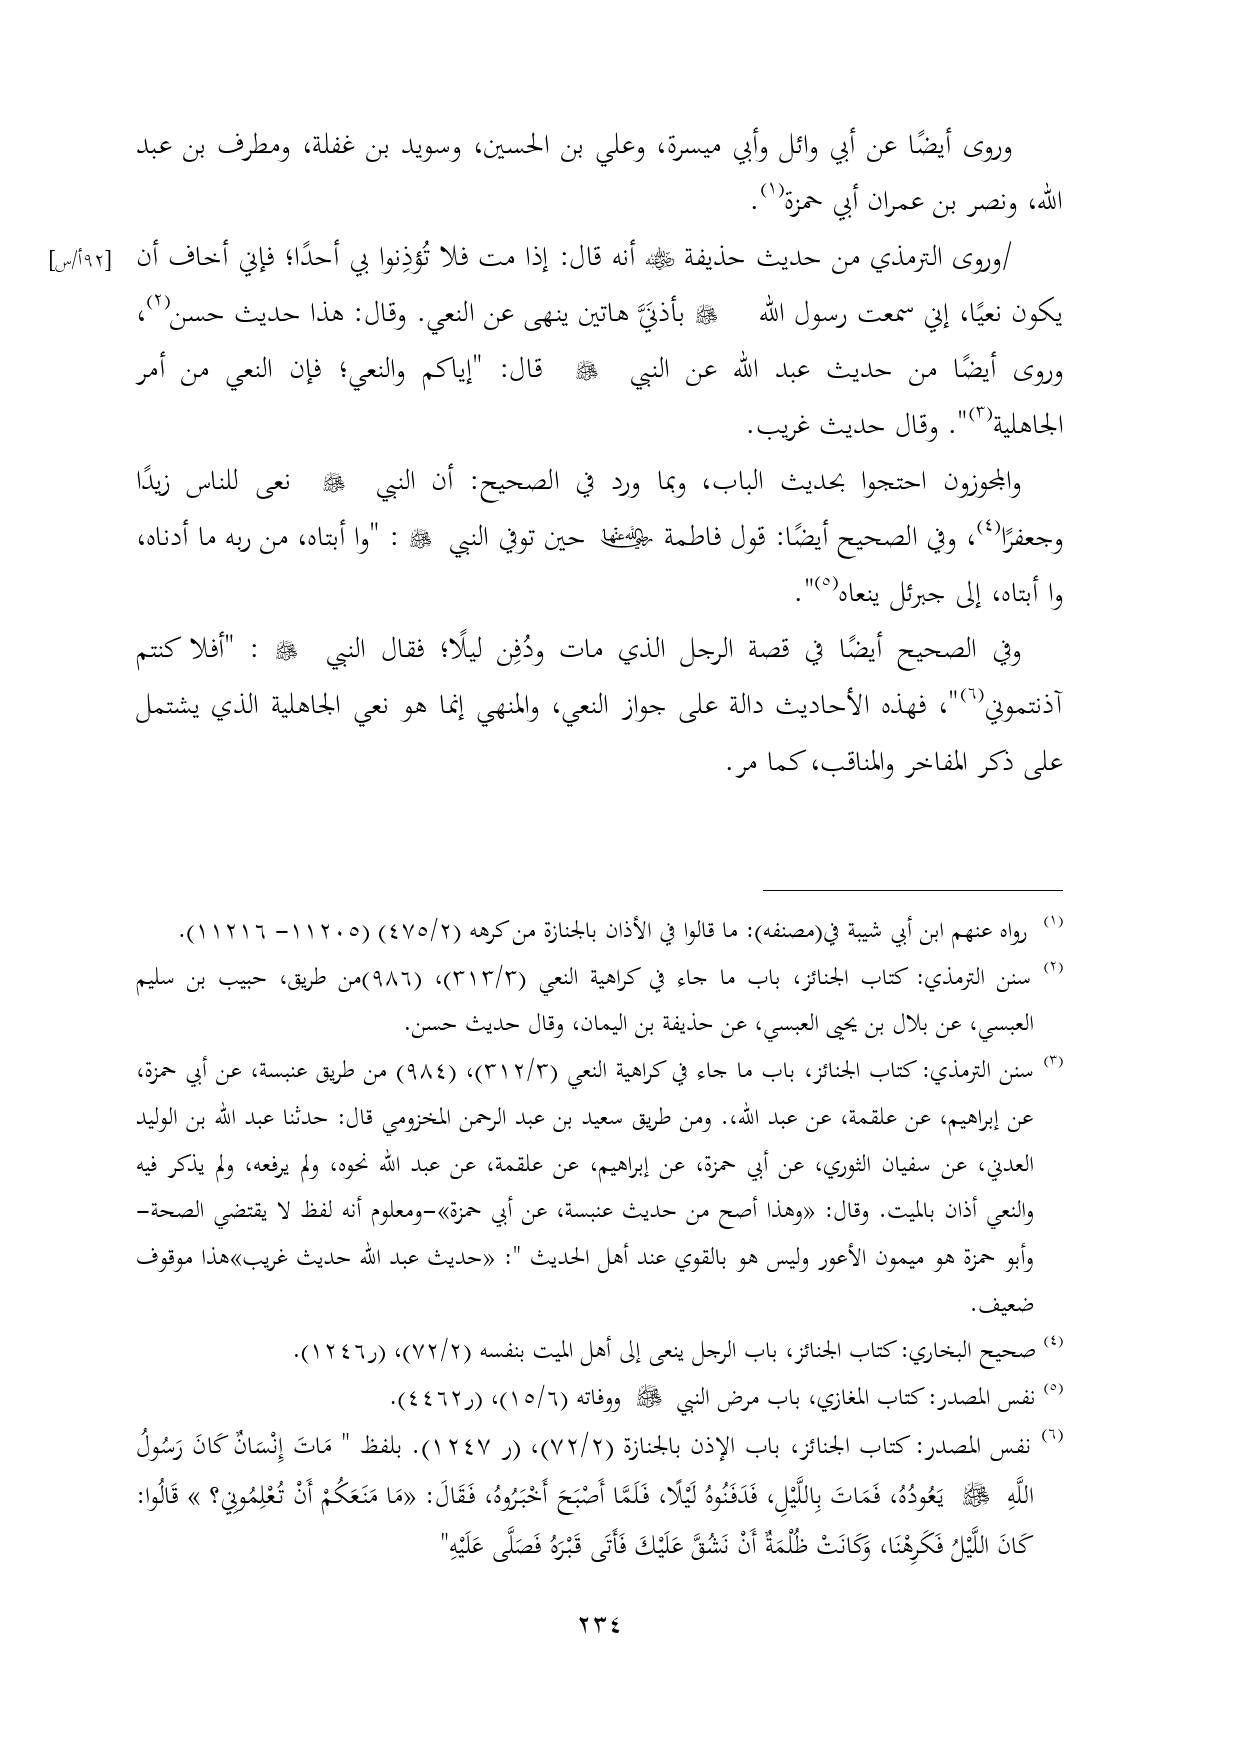 وروى أيضًا عن أبي وائل وأبي ميسرة، وعلي بن الحسين، وسويد بن غفلة، ومطرف بن عبد
الله، ونصر بن عمران أبي حمزة(١).
/وروى الترمذي من حديث حذيفة ﵁ أنه قال: إذا مت فلا تُؤذِنوا بي أحدًا؛ فإني أخاف أن [٩٢أ/س]
يكون نعيًا، إني سمعت رسول الله ﷺ بأذنَيَّ هاتين ينهى عن النعي. وقال: هذا حديث حسن(٢)،
وروى أيضًا من حديث عبد الله عن النبي ﷺ قال: "إياكم والنعي؛ فإن النعي من أمر
الجاهلية(٣)". وقال حديث غريب.
والمجوزون احتجوا بحديث الباب، وبما ورد في الصحيح: أن النبي ﷺ نعى للناس زيدًا
وجعفرًا(٤)، وفي الصحيح أيضًا: قول فاطمة رضي الله عنها حين توفي النبي ﷺ : "وا أبتاه، من ربه ما أدناه،
وا أبتاه، إلى جبرئل ينعاه(٥)".
وفي الصحيح أيضًا في قصة الرجل الذي مات ودُفِن ليلًا؛ فقال النبي ﷺ : "أفلا كنتم
آذنتموني(٦)"، فهذه الأحاديث دالة على جواز النعي، والمنهي إنما هو نعي الجاهلية الذي يشتمل
على ذكر المفاخر والمناقب، كما مر.
(١) رواه عنهم ابن أبي شيبة في(مصنفه): ما قالوا في الأذان بالجنازة من كرهه (٤٧٥/٢) (١١٢٠٥– ١١٢١٦).
(٢) سنن الترمذي: كتاب الجنائز، باب ما جاء في كراهية النعي (٣١٣/٣)، (٩٨٦)من طريق، حبيب بن سليم
العبسي، عن بلال بن يحيى العبسي، عن حذيفة بن اليمان، وقال حديث حسن.
(٣) سنن الترمذي: كتاب الجنائز، باب ما جاء في كراهية النعي (٣١٢/٣)، (٩٨٤) من طريق عنبسة، عن أبي حمزة،
عن إبراهيم، عن علقمة، عن عبد الله،. ومن طريق سعيد بن عبد الرحمن المخزومي قال: حدثنا عبد الله بن الوليد
العدني، عن سفيان الثوري، عن أبي حمزة، عن إبراهيم، عن علقمة، عن عبد الله نحوه، ولم يرفعه، ولم يذكر فيه
والنعي أذان بالميت. وقال: «وهذا أصح من حديث عنبسة، عن أبي حمزة»–ومعلوم أنه لفظ لا يقتضي الصحة–
وأبو حمزة هو ميمون الأعور وليس هو بالقوي عند أهل الحديث ": «حديث عبد الله حديث غريب»هذا موقوف
ضعيف.
(٤) صحيح البخاري: كتاب الجنائز، باب الرجل ينعى إلى أهل الميت بنفسه (٧٢/٢)، (ر١٢٤٦).
(٥) نفس المصدر: كتاب المغازي، باب مرض النبي ﷺ ووفاته (١٥/٦)، (ر٤٤٦٢).
(٦) نفس المصدر: كتاب الجنائز، باب الإذن بالجنازة (٧٢/٢)، (ر ١٢٤٧). بلفظ " مَاتَ إِنْسَانٌ كَانَ رَسُولُ
اللَّهِ ﷺ يَعُودُهُ، فَمَاتَ بِاللَّيْلِ، فَدَفَنُوهُ لَيْلًا، فَلَمَّا أَصْبَحَ أَخْبَرُوهُ، فَقَالَ: «مَا مَنَعَكُمْ أَنْ تُعْلِمُونِي؟ » قَالُوا:
كَانَ اللَّيْلُ فَكَرِهْنَا، وَكَانَتْ ظُلْمَةٌ أَنْ نَشُقَّ عَلَيْكَ فَأَتَى قَبْرَهُ فَصَلَّى عَلَيْهِ"
٢٣٤